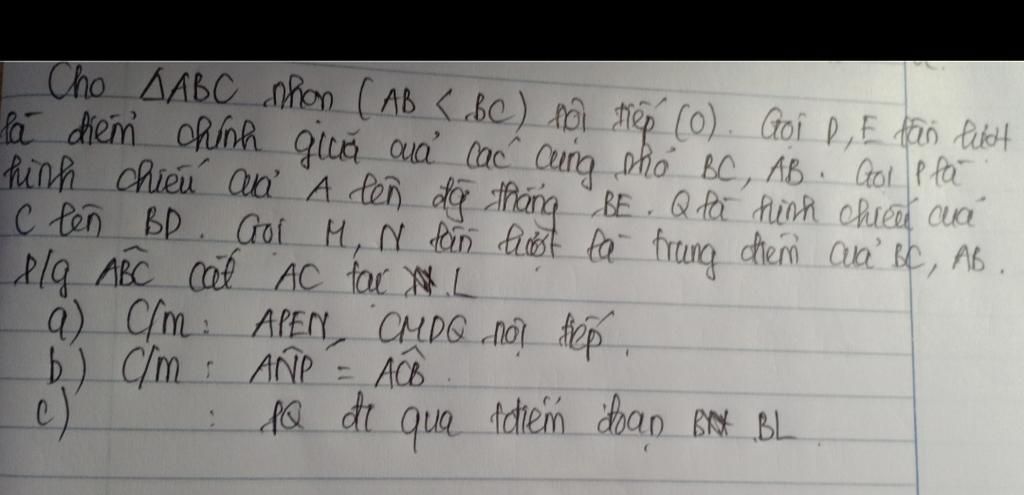 Cho ΔABC nhọn (AB < BC) nội tiếp (O). Gọi D, E lần lượt
là điểm chính giữa của các cung nhỏ BC, AB. Gọi P là
hình chiếu của A lên đg thẳng BE. Q là hình chiếu của
C lên BD. Gọi M, N lần lượt là trung điểm của BC, AB.
P/g ABC cắt AC tại L
a) C/m: APEN, CMDQ nội tiếp.
b) C/m: ANP = ACB.
c) : PQ đi qua tđiểm đoạn BL